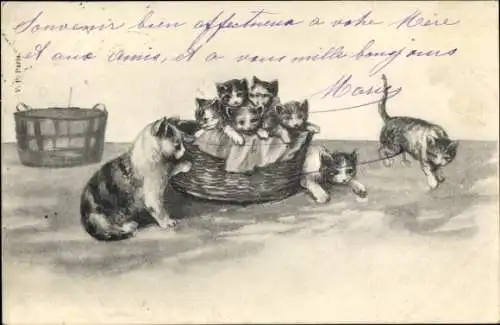 Souvenir bien affectueux a votre Mère
et aux Amis, et a vous mille bonjours
Marie
V. P. Paris